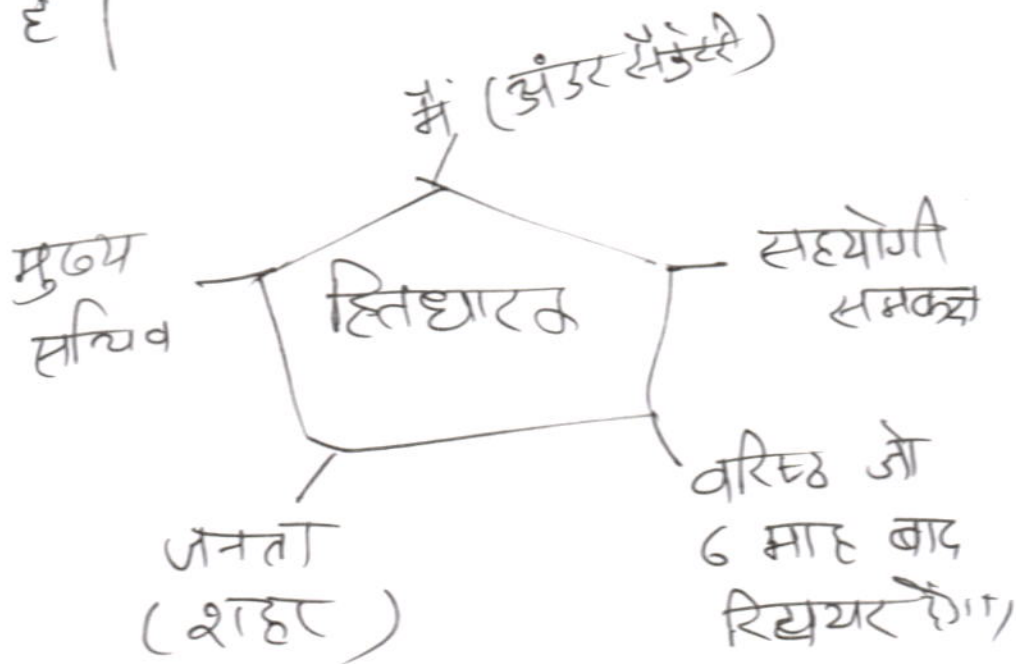 है।
मैं (अंडर सैक्रेटरी)
मुख्य
सचिव
हितधारक
सहयोगी
समकक्ष
जनता
(शहर)
वरिष्ठ जो
6 माह बाद
रिटायर होगा